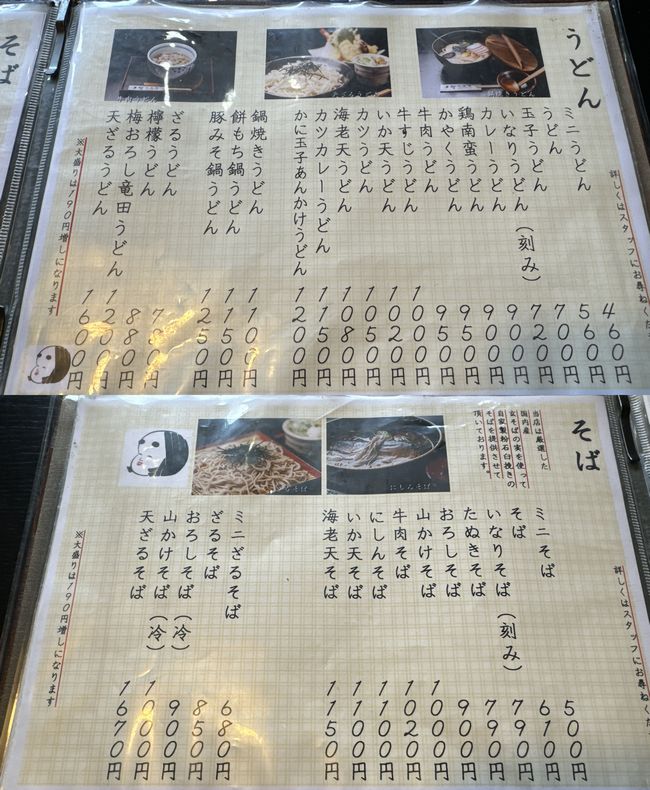 うどん
詳しくはスタッフにお尋ねくだ
ミニうどん 460円
うどん 560円
玉子うどん
いなりうどん（刻み） 720円
カレーうどん 900円
鶏南蛮うどん 900円
かやくうどん 950円
牛肉うどん 950円
牛すじうどん 1000円
いか天うどん 1020円
カツうどん 1050円
海老天うどん 1080円
カツカレーうどん 1150円
かに玉子あんかけうどん 1200円
鍋焼きうどん 1100円
餅もち鍋うどん 1150円
豚みそ鍋うどん 1250円
ざるうどん 780円
檸檬うどん 880円
梅おろし竜田うどん 1200円
天ざるうどん 1600円
※大盛りは190円増しになります
そば
そば
詳しくはスタッフにお尋ねくだ
当店は厳選した
国内産
玄そばの実を使って
自家製粉石臼挽きの
そばを提供させて
頂いております。
にしんそば
ミニそば 500円
そば 610円
いなりそば（刻み） 790円
たぬきそば 790円
おろしそば 900円
山かけそば 1000円
牛肉そば 1020円
にしんそば 1100円
いか天そば 1100円
海老天そば 1150円
ミニざるそば 680円
ざるそば 850円
おろしそば（冷） 900円
山かけそば（冷） 1000円
天ざるそば 1670円
※大盛りは190円増しになります